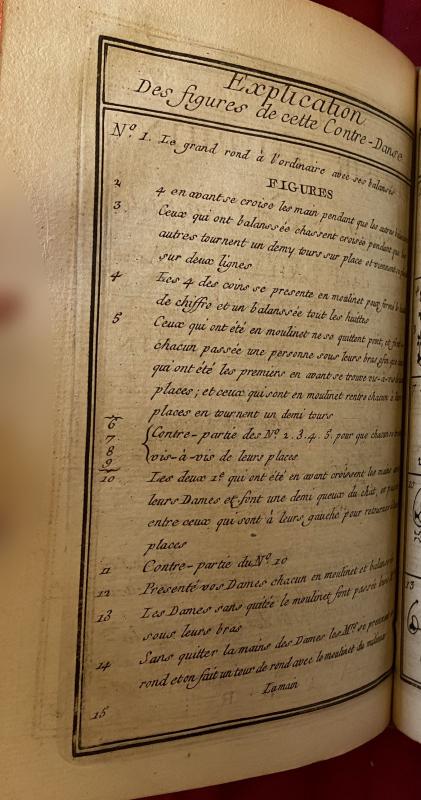 Explication
Des figures de cette Contre-Danse
Nº. 1. Le grand rond à l'ordinaire avec ses balansés
FIGURES
2 4 en avant se croise les main pendant que les autres
3 Ceux qui ont balanssée chassent croisée pendant que
autres tournent un demy tours sur place et viennent
sur deux lignes
4 Les 4 des coins se presente en moulinet pour formé
de chiffre et un balanssée tout les huittes
5 Ceux qui ont été en moulinet ne se quittent point, et
chacun passée une personne sous leurs bras afin que
qui ont été les premiers en avant se trouve vis-à-vis
places; et ceux qui sont en moulinet rentre chacun à
places en tournent un demi tours
6
7 Contre-partie des Nº 2. 3. 4. 5. pour que chacun
8 vis-à-vis de leurs places
9
10 Les deux 1ers qui ont été en avant croissent les mains
leurs Dames et font une demi queux du chat, et
entre ceux qui sont à leurs gauche pour retourner
places
11 Contre-partie du Nº 10
12 Presenté vos Dames chacun en moulinet et
13 Les Dames sans quitée le moulinet font passée
sous leurs bras
14 Sans quitter la mains des Dames les Mrs se
rond et on fait un tour de rond avec le moulinet du milieu
15 La main